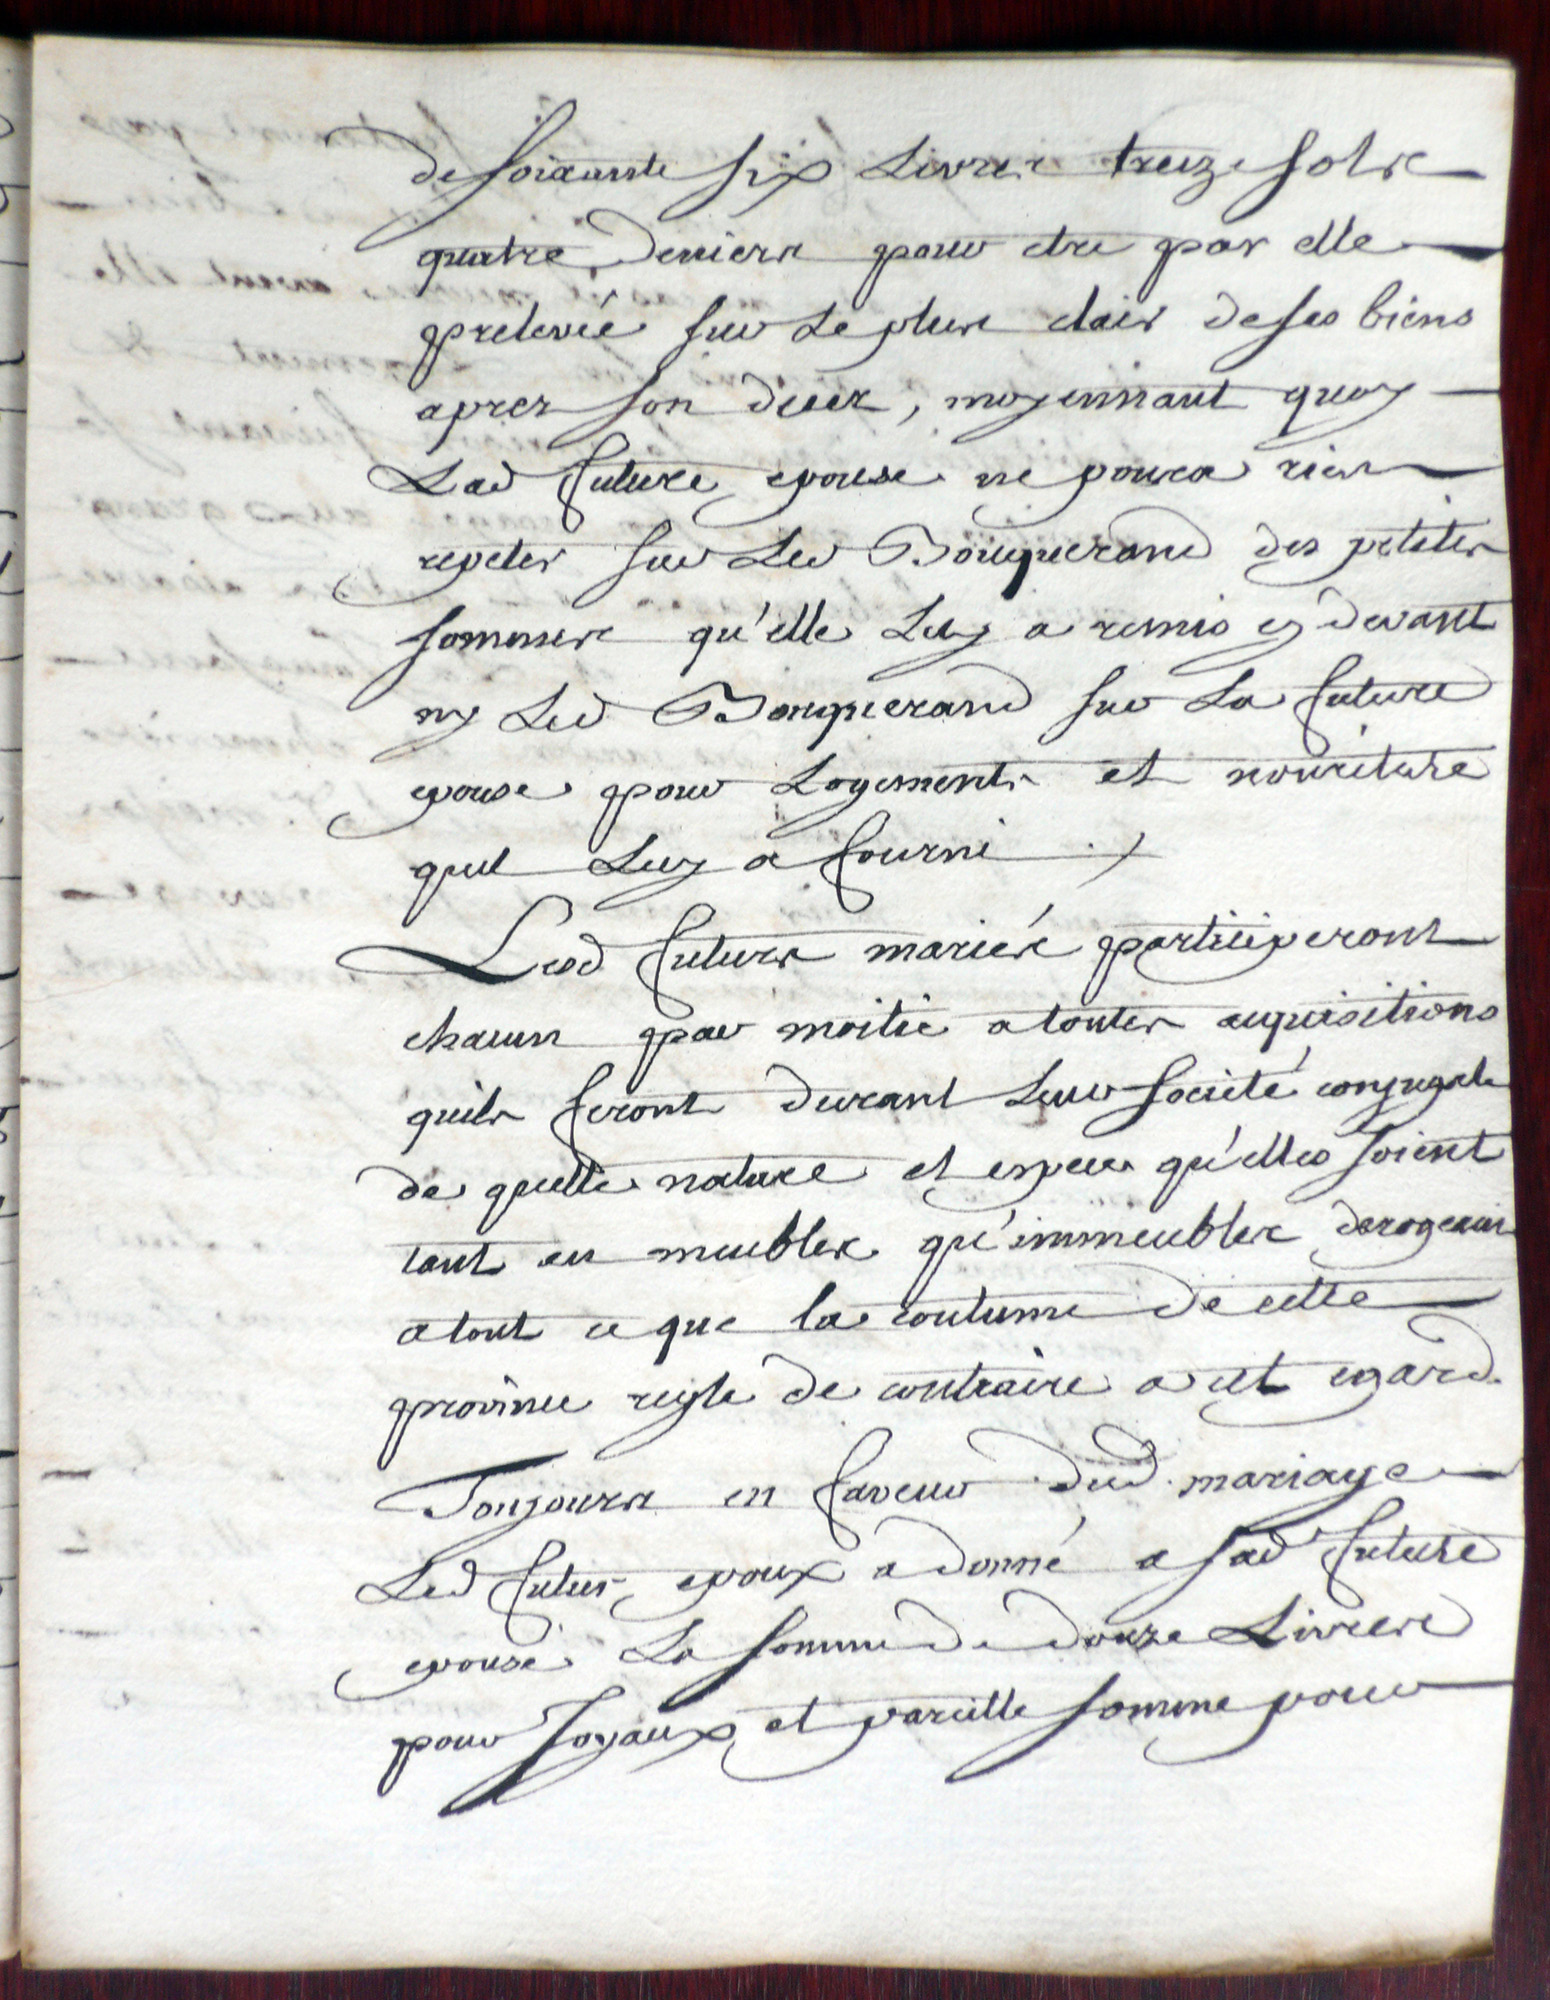 de soixante six Livres treize sols
quatre deniers pour etre par elle
prelevée sur Le plus clair de ses biens
apres son deces, moyennant quoy
Lad future epouse ne poura rien
repeter sur Led Bouquerand des petites
sommes qu'elle Luy a remis cy devant
ny Led Bouquerand sur La future
epouse pour Logements et nouriture
quil Luy a fourni
Lesd futurs mariés participeront
chacun par moitie a toutes acquisitions
quils feront durant Leur société conjugale
de quelle nature et espece qu'elles soient
tant en meubles qu'immeubles derogeant
a tout ce que la coutume de cette
province regle de contraire a cet egard.
Toujours en faveur dud. mariage
Led futur epoux a donné a sad future
epouse La somme de douze Livres
pour Joyaux et pareille somme pour